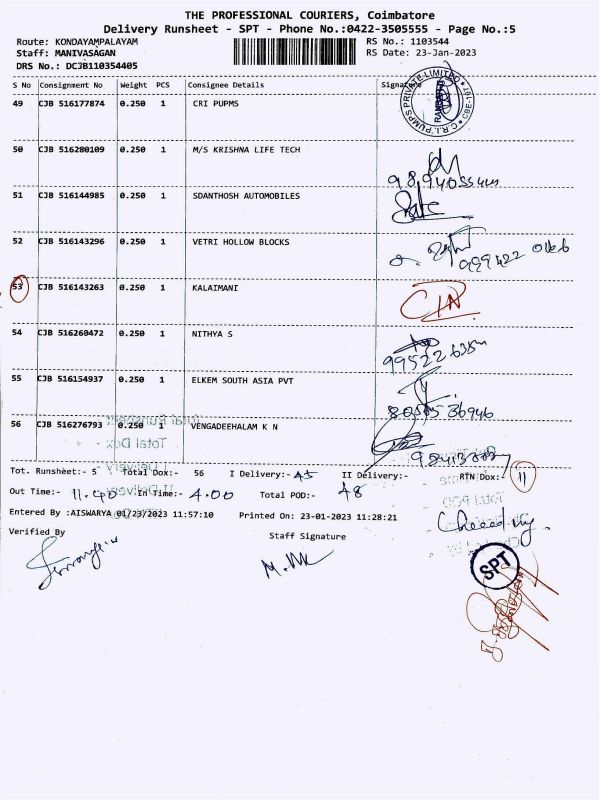 THE PROFESSIONAL COURIERS, Coimbatore
Delivery Runsheet - SPT - Phone No.:0422-3505555 - Page No.:5
Route: KONDAYAMPALAYAM RS No.: 1103544
Staff: MANIVASAGAN RS Date: 23-Jan-2023
DRS No.: DCJB110354405
S No Consignment No Weight PCS Consignee Details Signature
49 CJB 516177874 0.250 1 CRI PUPMS
C.R.I. PUMPS PRIVATE LIMITED
50 CJB 516280109 0.250 1 M/S KRISHNA LIFE TECH
51 CJB 516144985 0.250 1 SDANTHOSH AUTOMOBILES
52 CJB 516143296 0.250 1 VETRI HOLLOW BLOCKS
53 CJB 516143263 0.250 1 KALAIMANI
54 CJB 516260472 0.250 1 NITHYA S
55 CJB 516154937 0.250 1 ELKEM SOUTH ASIA PVT
80565 36946
56 CJB 516276793 0.250 1 VENGADEEHALAM K N
Tot. Runsheet:- 5 Total Dox:- 56 I Delivery:- 45 II Delivery:- RTN Dox:- 11
Out Time:- 11.40 In Time:- 4.00 Total POD:- 48
Entered By :AISWARYA 01/23/2023 11:57:10 Printed On: 23-01-2023 11:28:21
Verified By Staff Signature
SPT